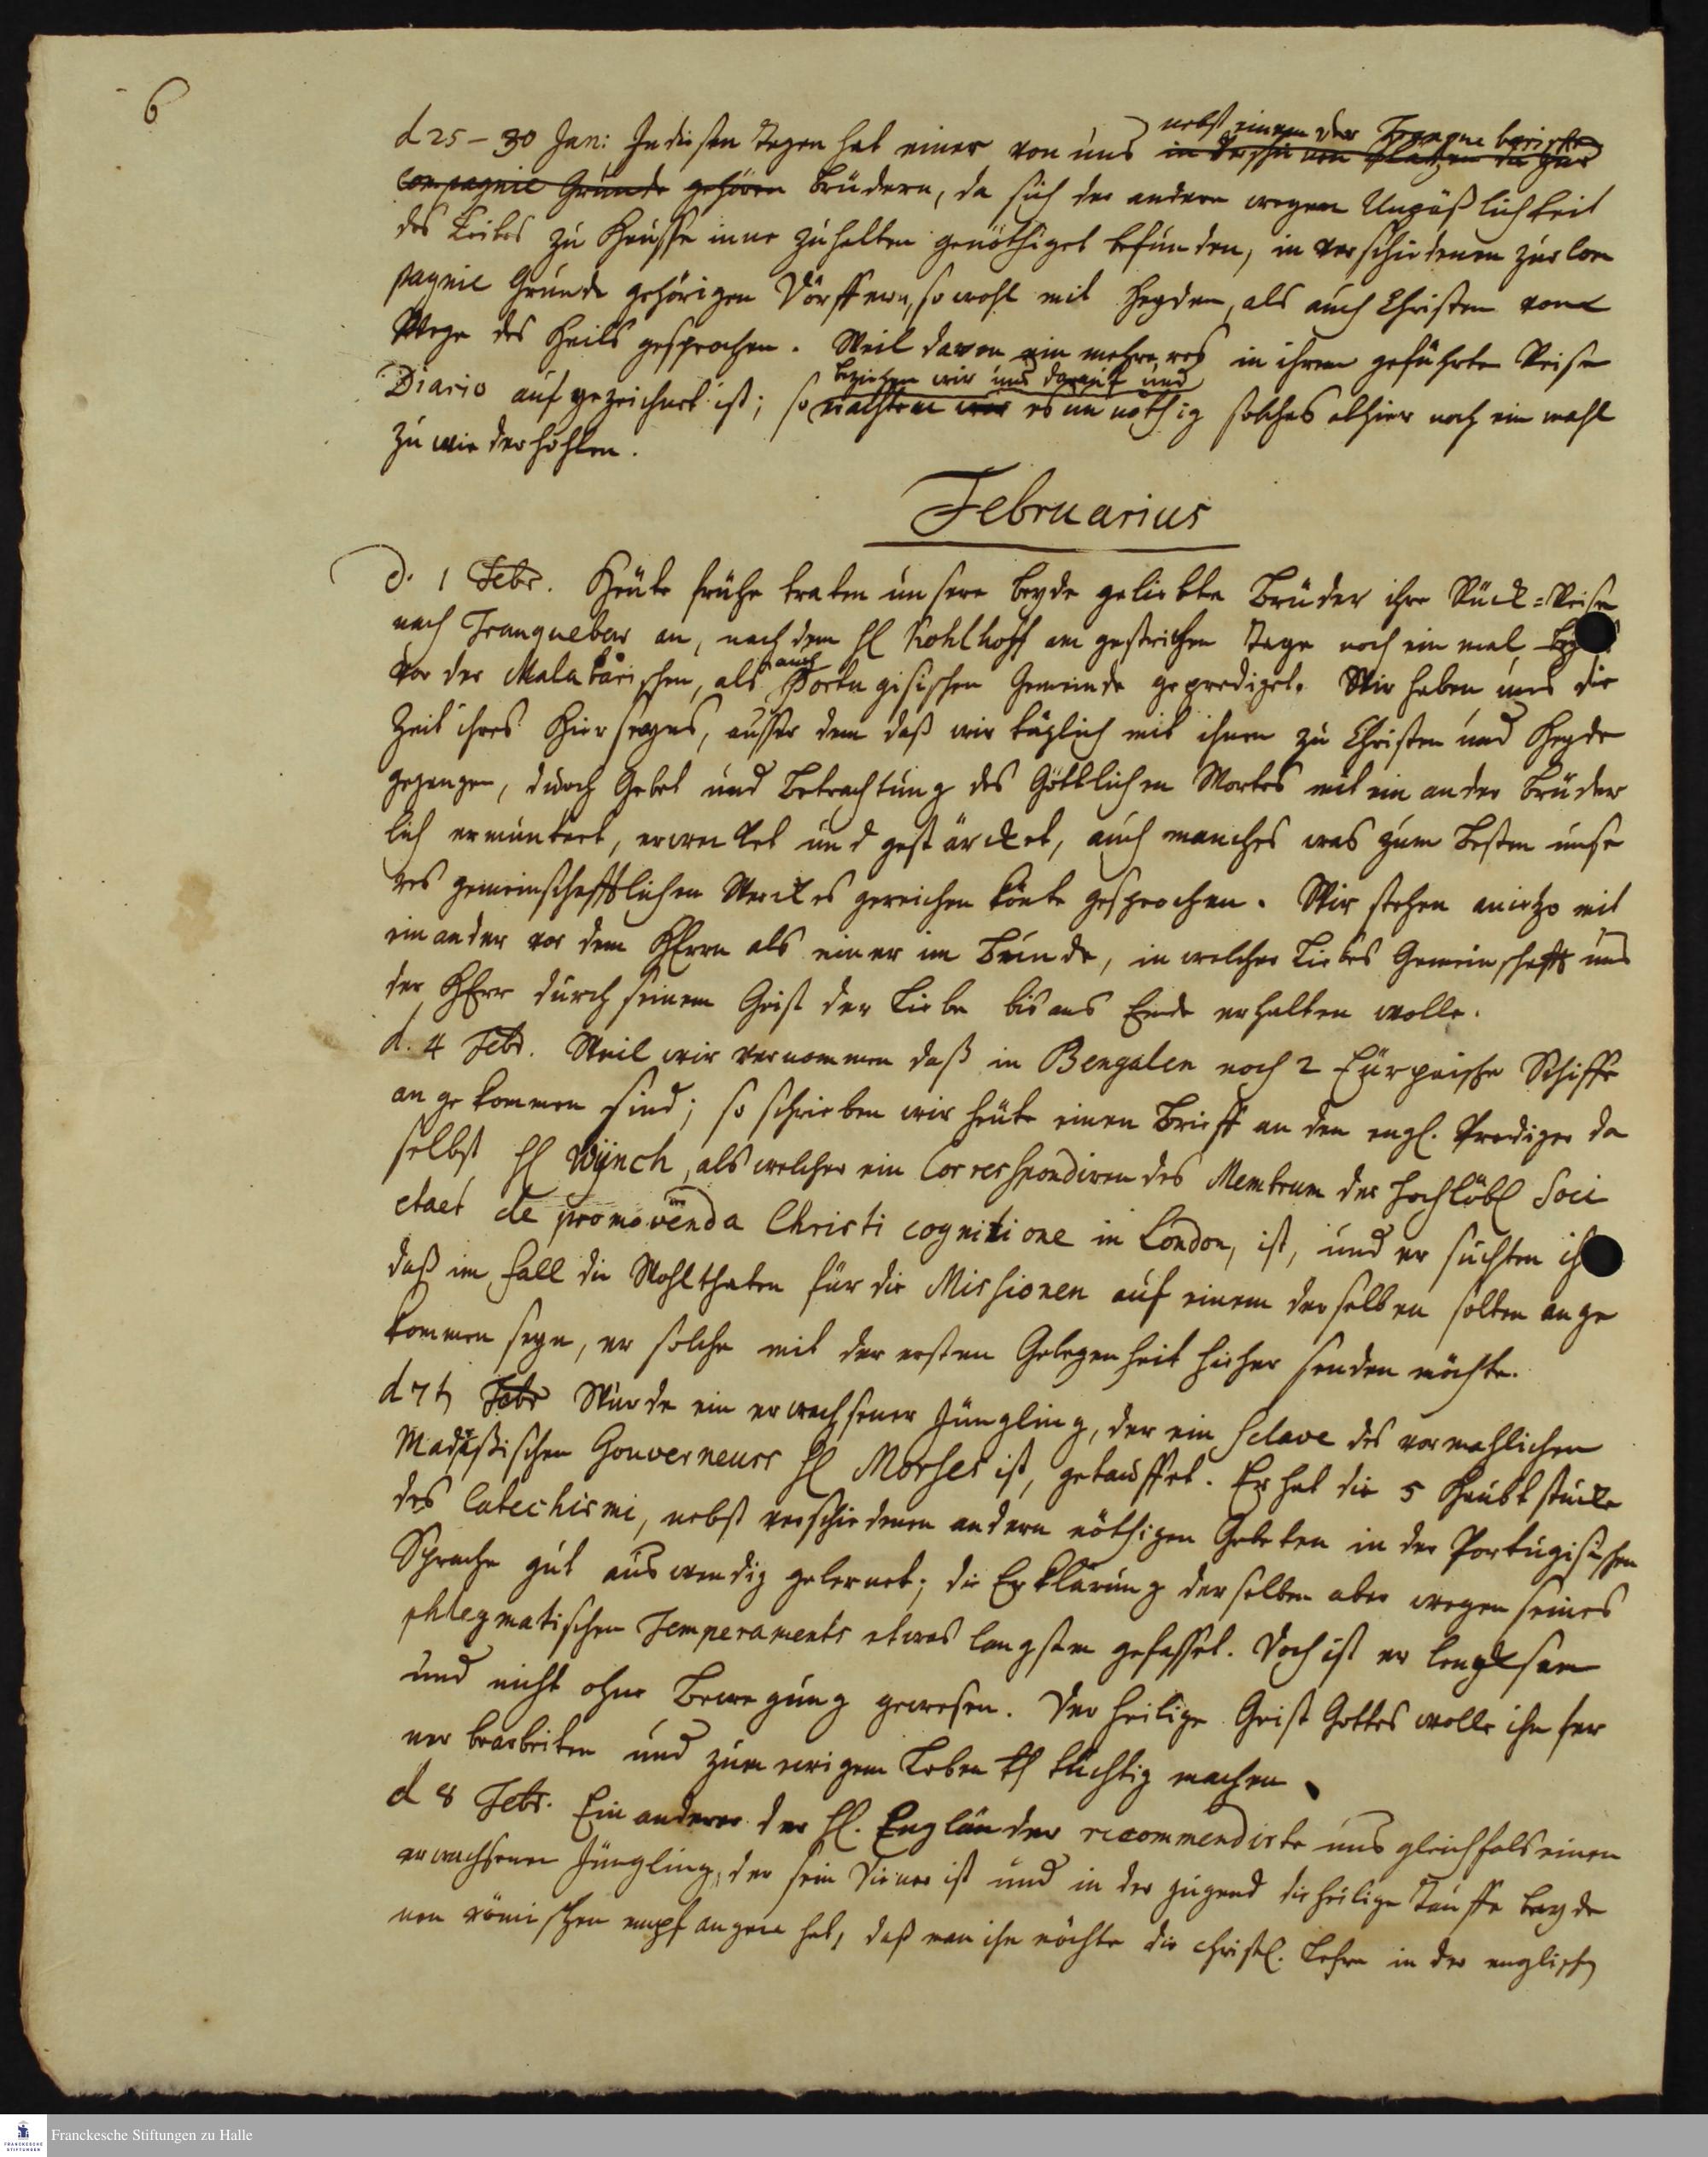 6
d 25 – 30 Jan: In diesen Tagen hat einer von uns nebst einem der Tranquebarischen
in verschiedenen Plätzen die zur
Compagnie Grunde gehören Brüdern, da sich der andere wegen Unpäßlichkeit
des Leibes zu Hausse inne zuhalten genöthiget befunden, in verschiedenen zur Com
pagnie Grunde gehörigen Dörffern, so wohl mit Heyden, als auch Christen vom
Wege des Heils gesprochen. Weil davon ein mehreres in ihrem geführten Reise
beziehen wir uns darauf und
Diario aufgezeichnet ist; so erachten wir es unnöthig solches alhier noch ein mahl
zu wiederhohlen.
Februarius
d. 1 Febr. Heute frühe traten unsere beyde geliebte Brüder ihre Rück=Reise
nach Tranquebar an, nachdem H Kohlhoff am gestrichen Tage noch ein mal
vor der Malabarischen, als auch Portugisischen Gemeinde geprediget. Wir haben uns die
Zeit ihres Hierseyns, ausser dem daß wir täglich mit ihnen zu Christen und Heyde
gegangen, durch Gebet und Betrachtung des Göttlichen Wortes mit ein ander brüder
lich ermuntert, erwecket und gestärcket, auch manches was zum Besten unse
res gemeinschafftlichen Werckes gereichen könte gesprochen. Wir stehen anietzo mit
einander vor dem HErrn als einer im Bunde, in welcher Liebes Gemeinschafft uns
der HErr durch seinem Geist der Liebe bis ans Ende erhalten wolle.
d. 4 Febr. Weil wir vernommen daß in Bengalen noch 2 Eüropaische Schiffe
angekommen sind; so schrieben wir heute einen Brieff an den engl. Prediger da
selbst H Wynch, als welcher ein Correspondirendes Membrum der Hochlöbl Soci
etaet de promovenda Christi cognitione in London, ist, und ersuchten ih
daß im fall die Wohlthaten für die Missionen auf einem derselben solten ange
kommen seyn, er solche mit der ersten Gelegenheit hieher senden möchte.
d 7t Febr Wurde ein erwachsener Jüngling, der ein Sclave des vormahlichen
Madraßischen Gouverneurs H Morses ist, getauffet. Er hat die 5 Haubtstücke
des Catechismi, nebst verschiedenen andern nöthigen Gebeten in der Portugisischen
Sprache gut auswendig gelernet; die Erklärung derselben aber wegen seines
phlegmatischen Temperaments etwas langsam gefasset. Doch ist er lencksam
und nicht ohne Bewegung gewesen. Der heilige Geist Gottes wolle ihn fer
ner bearbeiten und zum ewigem Leben tüchtig machen.
d 8 Febr. Ein anderer der H. Engländer recommendirte uns gleichfals einen
erwachsenen Jüngling, der sein Diener ist und in der jugend die heilige Tauffe bey de
nen römischen empfangen hat, daß man ihn möchte die christl. Lehre in der englischen
Franckesche Stiftungen zu Halle